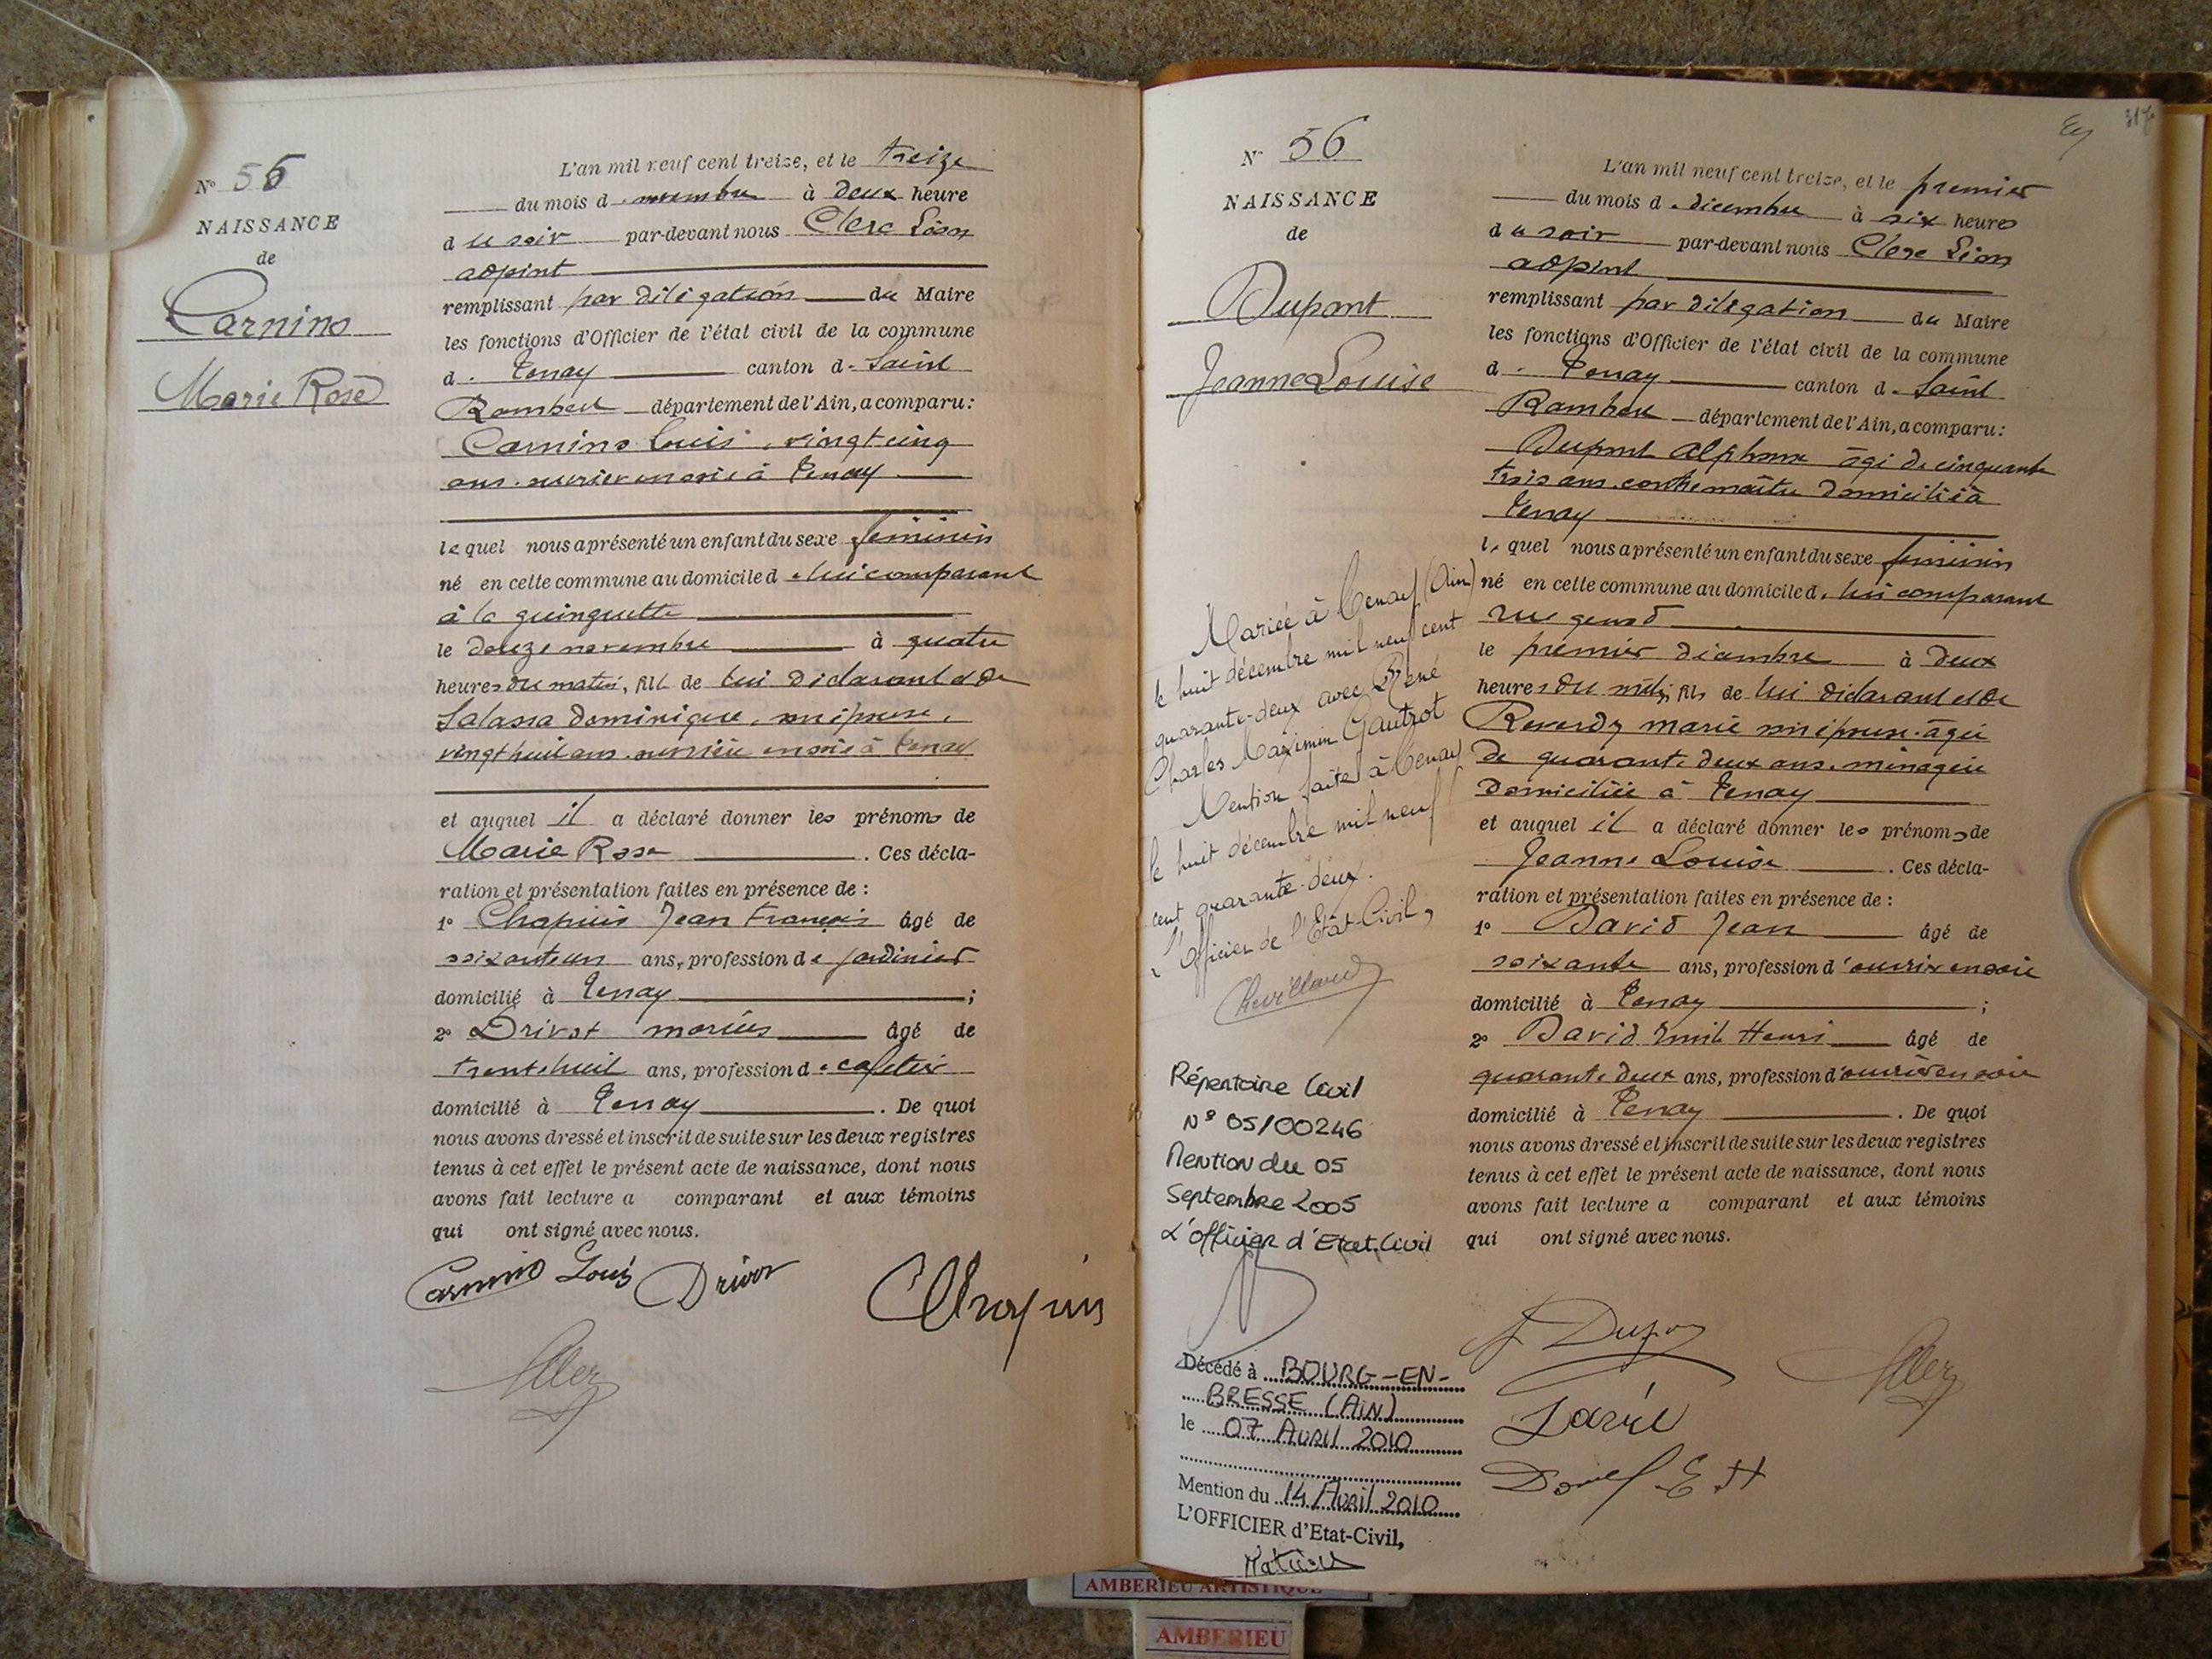 N° 55
NAISSANCE
de
Carnino
Marie Rose
L'an mil neuf cent treize, et le treize
du mois d. novembre à deux heure
du soir par-devant nous Clerc Léon
adjoint
remplissant par délégation du Maire
les fonctions d'Officier de l'état civil de la commune
d. Tenay canton d. Saint
Rambert département de l'Ain, a comparu:
Carnino Louis, vingt cinq
ans. ouvrier en soie à Tenay
lequel nous a présenté un enfant du sexe féminin
né en cette commune au domicile d. lui comparant
à la guinguette
le douze novembre à quatre
heures du matin, fill de lui déclarant et de
Salassa Dominique, son épouse,
vingt huit ans. ouvrière en soie à Tenay
et auquel il a déclaré donner les prénoms de
Marie Rose. Ces décla-
ration et présentation faites en présence de :
1° Chapuis Jean François âgé de
soixante un ans, profession de jardinier
domicilié à Tenay ;
2° Drivet Marius âgé de
trente huit ans, profession de cafetier
domicilié à Tenay. De quoi
nous avons dressé et inscrit de suite sur les deux registres
tenus à cet effet le présent acte de naissance, dont nous
avons fait lecture a comparant et aux témoins
qui ont signé avec nous.
Carnino Louis Drivet Chapuis
N° 56
NAISSANCE
de
Dupont
Jeanne Louise
Mariée à Tenay (Ain)
le huit décembre mil neuf cent
quarante-deux avec René
Charles Maximin Gautrot
Mention faite à Tenay
le huit décembre mil neuf
cent quarante-deux.
L'Officier de l'État Civil,
Répertoire Civil
N° 05/00246
Mention du 05
Septembre 2005
L'officier d'Etat. Civil
Décédé à BOURG-EN-
BRESSE (AIN)
le 07 Avril 2010
Mention du 14 Avril 2010
L'OFFICIER d'Etat-Civil,
317
L'an mil neuf cent treize, et le premier
du mois d. décembre à six heures
du soir par-devant nous Clerc Léon
adjoint
remplissant par délégation du Maire
les fonctions d'Officier de l'état civil de la commune
d. Tenay canton d. Saint
Rambert département de l'Ain, a comparu:
Dupont Alphonse âgé de cinquante
trois ans. contremaître domicilié à
Tenay
lequel nous a présenté un enfant du sexe féminin
né en cette commune au domicile d. lui comparant
rue
le premier décembre à deux
heures du matin, fils de lui déclarant et de
Reverdy Marie son épouse. âgée
de quarante deux ans. ménagère
domiciliée à Tenay
et auquel il a déclaré donner les prénoms de
Jeanne Louise. Ces décla-
ration et présentation faites en présence de :
1° David Jean âgé de
soixante ans, profession d'ouvrier en soie
domicilié à Tenay ;
2° David Emile Henri âgé de
quarante deux ans, profession d'ouvrier en soie
domicilié à Tenay. De quoi
nous avons dressé et inscrit de suite sur les deux registres
tenus à cet effet le présent acte de naissance, dont nous
avons fait lecture a comparant et aux témoins
qui ont signé avec nous.
AMBERIEU ARTISTIQUE
AMBERIEU